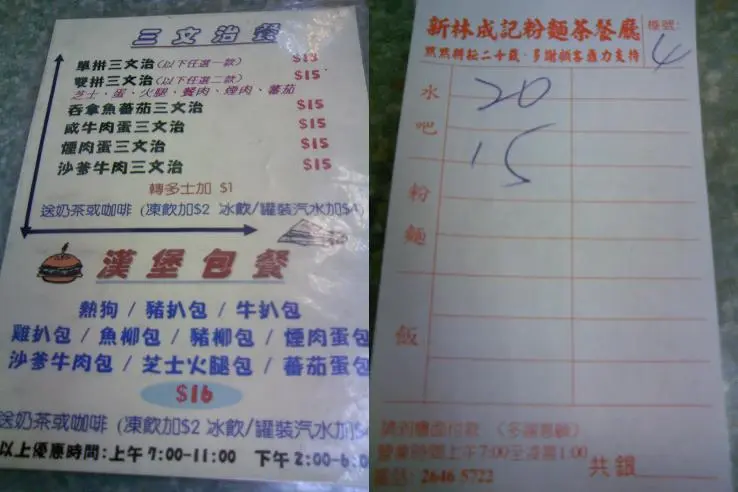 三文治餐
單拼三文治(以下任選一款) $13
雙拼三文治(以下任選二款) $15
芝士、蛋、火腿、餐肉、煙肉、蕃茄
吞拿魚蕃茄三文治 $15
咸牛肉蛋三文治 $15
煙肉蛋三文治 $15
沙爹牛肉三文治 $15
轉多士加 $1
送奶茶或咖啡 (凍飲加$2 冰飲/罐裝汽水加$4)
漢堡包餐
熱狗 / 豬扒包 / 牛扒包
雞扒包 / 魚柳包 / 豬柳包 / 煙肉蛋包
沙爹牛肉包 / 芝士火腿包 / 蕃茄蛋包
$16
送奶茶或咖啡 (凍飲加$2 冰飲/罐裝汽水加$4
以上優惠時間:上午7:00-11:00 下午2:00-6:0
新林成記粉麵茶餐廳
默默耕耘二十載·多謝顧客鼎力支持
檯號:
4
水吧
20
15
粉麵
飯
請到櫃面付款 (多謝惠顧)
營業時間上午7:00至凌晨1:00
電話: 2646 5722
共銀